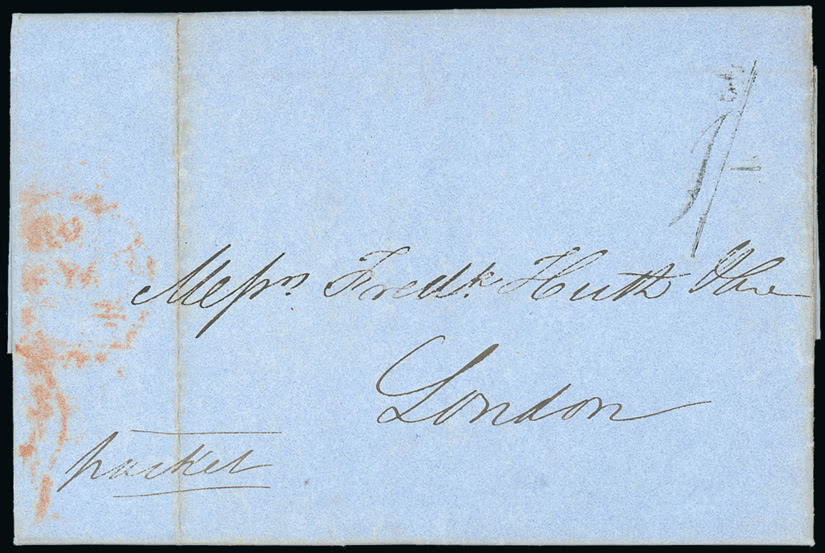 1/-
Messrs Fredk Huth & Co
London
packet